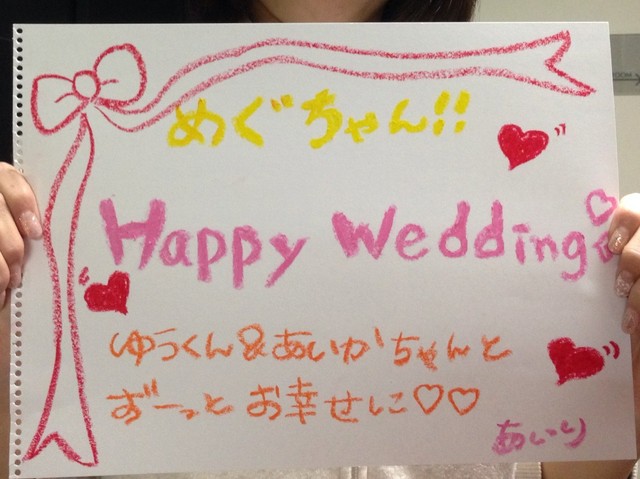 めぐちゃん!!
Happy Wedding
ゆうくん&あいかちゃんと
ずーっとお幸せに♡♡
あいり